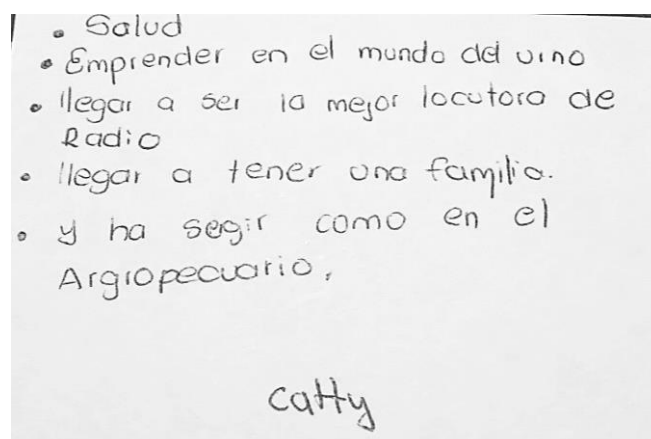 • Salud
• Emprender en el mundo del vino
• llegar a ser la mejor locutora de
Radio
• llegar a tener una familia.
• y ha segir como en el
Argropecuario,
catty